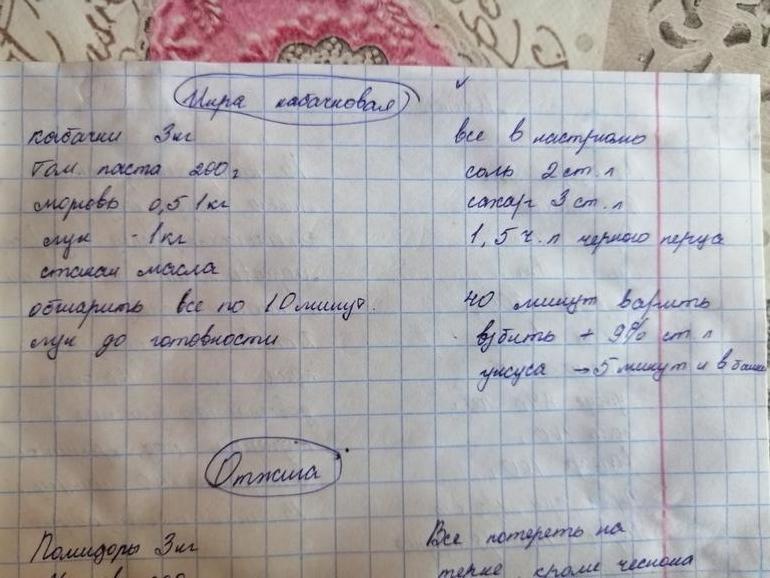 Икра кабачковая
кабачки 3кг
Том. паста 200г
морковь 0,5 1кг
лук - 1кг
стакан масла
обжарить все по 10 минут.
лук до готовности
все в кастрюлю
соль 2 ст. л
сахар 3 ст. л
1,5 ч. л черного перца
40 минут варить
взбить + 9% ст л
уксуса → 5 минут и в банки
Отжига
Помидоры 3кг
Все потереть на
терке, кроме чеснока